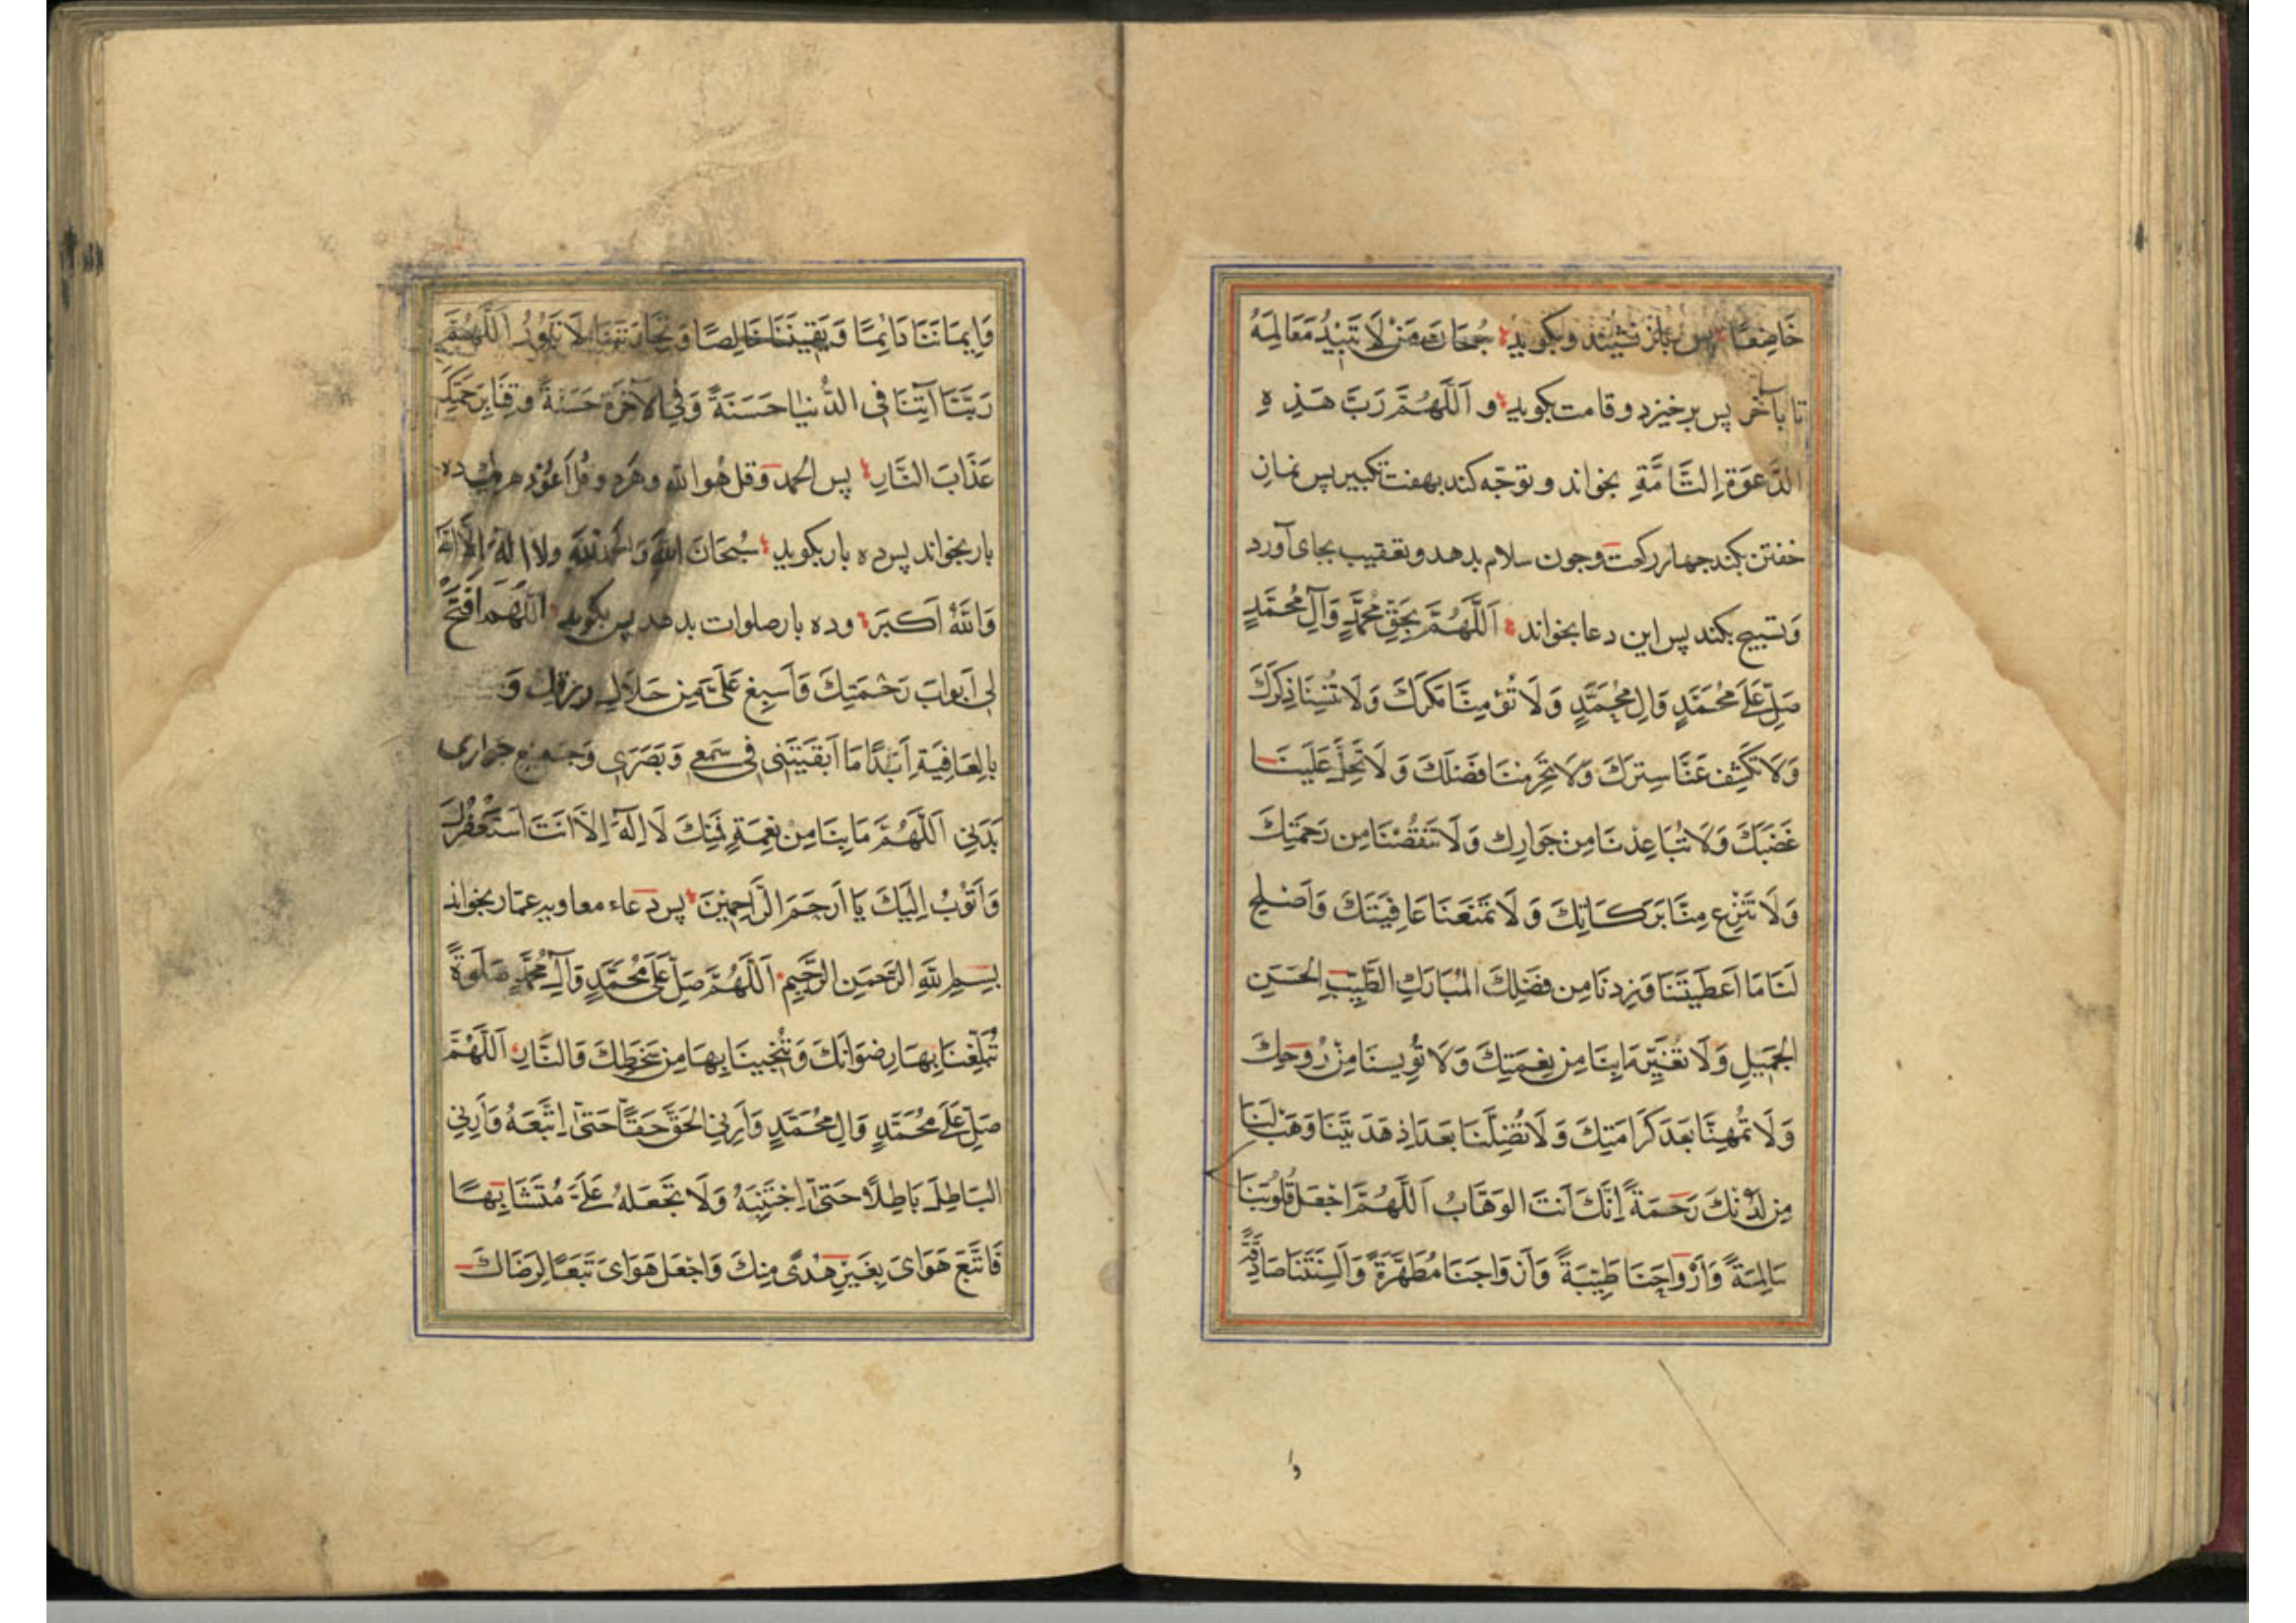 خَاضِعًا پس باز نشیند و بکوید سُبحَانَ مَنْ لَا تَبِیدُ مَعَالِمَهُ
تا بآخر پس برخیزد و قامت بکوید و اَللَّهُمَّ رَبَّ هَذِهِ
الدَّعْوَةِ التَّامَّةِ بخواند و توجّه کند بهفت تکبیر پس نماز
خفتن بکند جهار رکعت و جون سلام بدهد و تعقیب بجای آورد
وَ تسبیح بکند پس این دعا بخواند اَللَّهُمَّ بِحَقِّ مُحَمَّدٍ وَآلِ مُحَمَّدٍ
صَلِّ عَلَى مُحَمَّدٍ وَالِ مُحَمَّدٍ وَلَا تُؤْمِنَّا مَكْرَكَ وَلَا تُنْسِنَا ذِكْرَكَ
وَلَا تَكْشِف عَنَّا سِتْرَكَ وَلَا تَحْرِمنَا فَضْلَكَ وَلَا تُحِلَّ عَلَيْنَا
غَضَبَكَ وَلَا تُبَاعِدنَا مِنْ جَوَارِكَ وَلَا تَنْقُصْنَا مِن رَحْمَتِكَ
وَلَا تَنْزِع مِنَّا بَرَكَاتِكَ وَلَا تَمْنَعنَا عَافِيَتَكَ وَاَصْلِح
لَنَا مَا اَعْطَيْتَنَا وَزِدنَا مِن فَضْلِكَ المُبَارَكِ الطَّيِّبِ الحَسَنِ
الجَمِيلِ وَلَا تُغَيِّر مَا بِنَا مِن نِعْمَتِكَ وَلَا تُويِسنَا مِنْ رُوحِكَ
وَلَا تُهِنَّا بَعدَ كَرَامَتِكَ وَلَا تُضِلَّنَا بَعدَ اِذ هَدَيْتَنَا وَهَبْ لَنَا
مِن لَدُنْكَ رَحْمَةً اِنَّكَ اَنتَ الوَهَّابُ اَللَّهُمَّ اجْعَل قُلُوبَنَا
سَالِمَةً وَاَرْوَاحَنَا طَيِّبَةً وَاَزوَاجَنَا مُطَهَّرَةً وَاَلْسِنَتَنَا صَادِقَةً
وا
وَاِيمَانَنَا دَائِمًا وَيَقِينَنَا خَالِصًا وَتِجَارَتَنَا لَا تَبُورُ اَللَّهُمَّ
رَبَّنَا آتِنَا فِي الدُّنيَا حَسَنَةً وَفِي الآخِرَةِ حَسَنَةً وَقِنَا بِرَحْمَتِكَ
عَذَابَ النَّارِ پس الحمد و قل هو الله و قل اعوذ هر یک ده
بار بخواند پس ده بار بکوید سُبْحَانَ اللهِ وَالحَمدُ للهِ وَلَا اِلهَ اِلَّا اللهُ
وَاللهُ اَكبَرُ و ده بار صلوات بدهد پس بکوید اللّهُمَّ افْتَحْ
لِي اَبوَابَ رَحْمَتِكَ وَاَسبِغ عَلَيَّ مِن حَلَالِ رِزْقِكَ وَ
بِالعَافِيَةِ اَبَدًا مَا اَبْقَيْتَنِى فِى سَمْعِي وَبَصَرِي وَجَمِيعِ جَوَارِحِ
بَدَنِي اَللَّهُمَّ مَا بِنَا مِنْ نِعْمَةٍ فَمِنْكَ لَا اِلَهَ اِلَّا اَنْتَ اَسْتَغْفِرُكَ
وَاَتُوْبُ اِلَيْكَ يَا اَرحَمَ الرَّاحِمِينَ پس دعاء معاویه عمّار بخواند
بِسمِ اللهِ الرَّحْمَنِ الرَّحِيمِ اَللَّهُمَّ صَلِّ عَلَى مُحَمَّدٍ وَآلِ مُحَمَّدٍ صَلَوةً
تُبَلِّغُنَا بِهَا رِضوَانَكَ وَتُنْجِينَا بِهَا مِن سَخَطِكَ وَالنَّارِ اَللَّهُمَّ
صَلِّ عَلَى مُحَمَّدٍ وَالِ مُحَمَّدٍ وَاَرِنِي الحَقَّ حَقّاً حَتَّى اَتَّبِعَهُ وَاَرِنِي
البَاطِلَ بَاطِلًا حَتَّى اَجْتَنِبَهُ وَلَا تَجْعَلهُ عَلَيَّ مُتَشَابِهًا
فَاَتَّبِعَ هَوَاىَ بِغَيْرِ هُدًى مِنكَ وَاجْعَل هَوَاىَ تَبَعًا لِرِضَاكَ